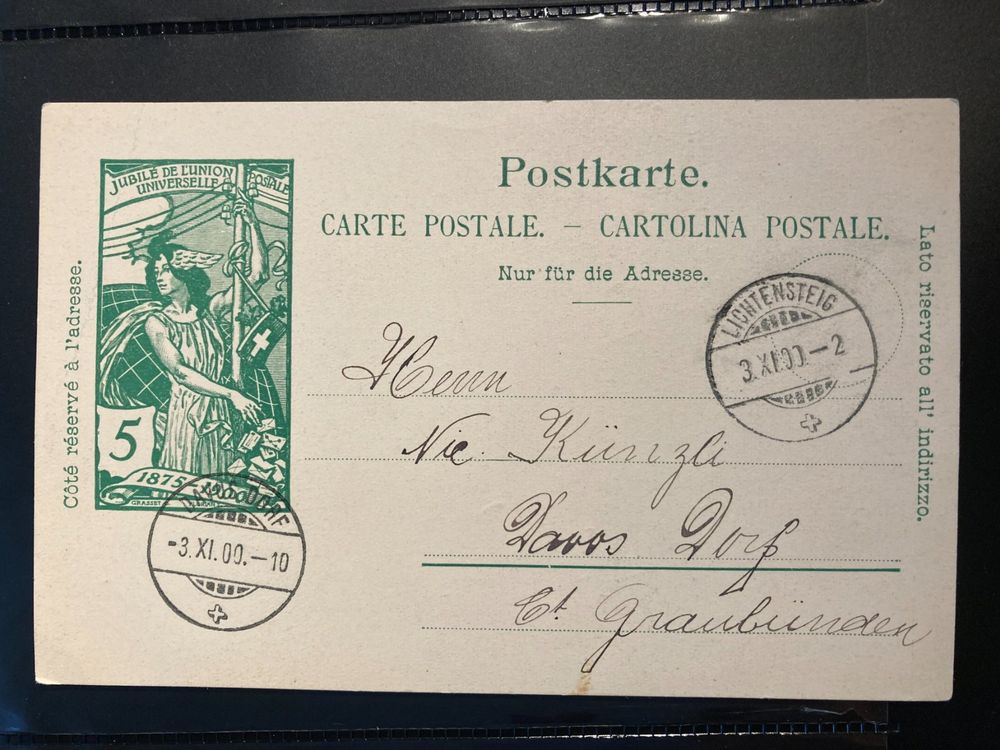 JUBILÉ DE L'UNION POSTALE
UNIVERSELLE
5
1875
GRASSET
Postkarte.
CARTE POSTALE. – CARTOLINA POSTALE.
Nur für die Adresse.
Côté réservé à l'adresse.
Lato riservato all' indirizzo.
LICHTENSTEIG
3.XI.00.–2
Herrn
Nic. Künzli
Davos Dorf
Ct. Graubünden
-3.XI.00.–10